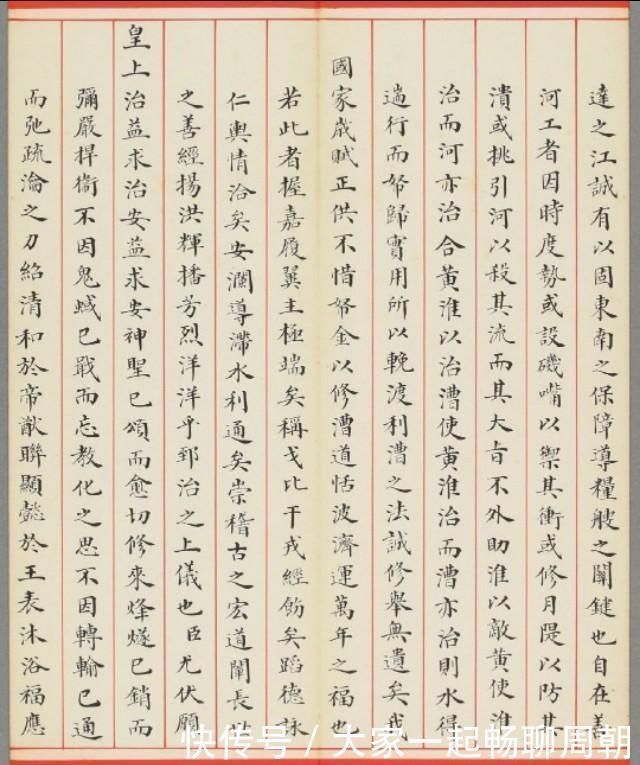 達之江誠有以固東南之保障導糧艘之關鍵也自在善
河工者因時度勢或設磯嘴以禦其衝或修月隄以防其
潰或挑引河以殺其流而其大旨不外助淮以敵黃使淮
治而河亦治合黃淮以治漕使黃淮治而漕亦治則水得
遄行而帑歸實用所以輓渡利漕之法誠修舉無遺矣我
國家歲賦正供不惜帑金以修漕道恬波濟運萬年之福也
若此者握嘉履翼主極端矣稱戈比干戎經飭矣蹈德詠
仁輿情洽矣安瀾導滯水利通矣崇稽古之宏道闡長
之善經揚洪輝播芳烈洋洋乎郅治之上儀也臣尤伏願
皇上治益求治安益求安神聖已頌而愈切修來烽燧已銷而
彌嚴捍衛不因鬼蜮已戢而忘教化之思不因轉輸已通
而弛疏瀹之力紹清和於帝猷聯顯懿於王表沐浴福應
快传号 / 大家一起畅聊周朝